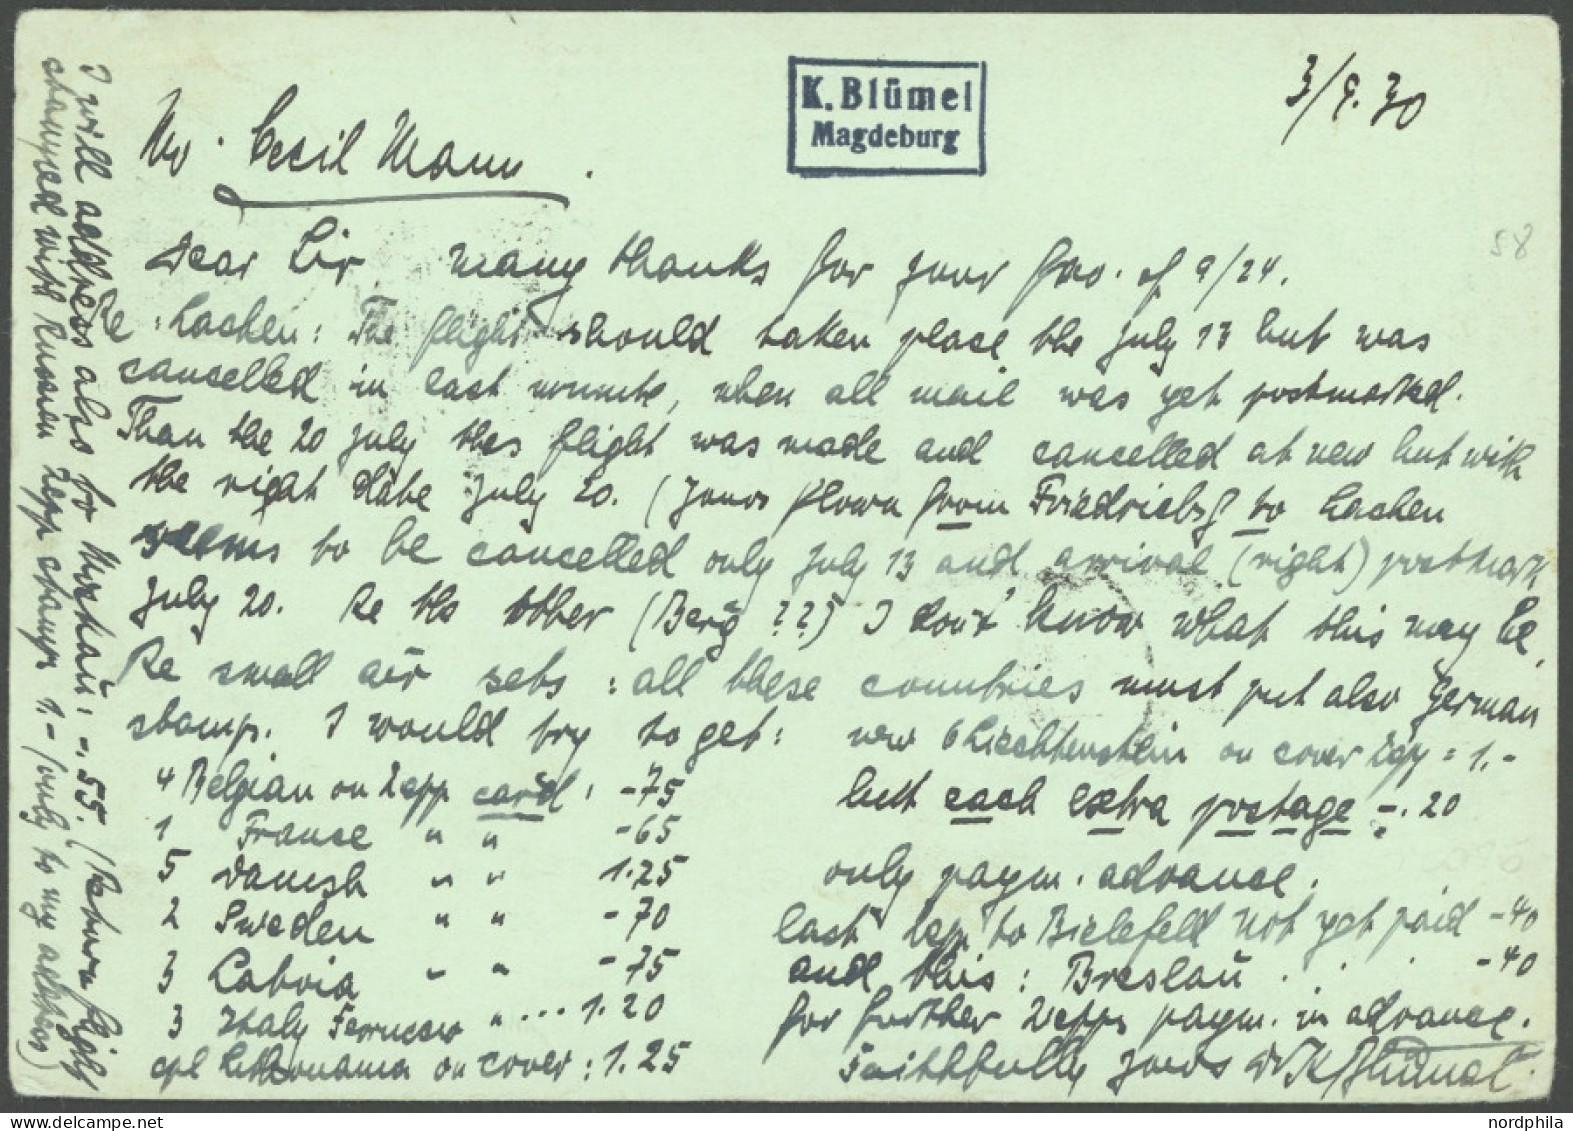 K. Blümel
Magdeburg
3/9.30
Mr. Cecil Mann.
Dear Sir many thanks for your fav. of 9/24.
Re: Lachen: The flight should taken place the July 13 but was
cancelled in last minute, when all mail was yet postmarked.
Than the 20 July this flight was made and cancelled at new but with
the right date July 20. (Yours flown from Friedrichsf to Lachen
seems to be cancelled only July 13 and arrival (right) postmark
July 20. Re the other (Berg ??) I don't know what this may be.
Re small air sets: all these countries must put also German
stamp. I would try to get:
4 Belgian on Zepp card: -75
1 France " " -65
5 Danish " " 1.25
2 Sweden " " -70
3 Latvia " " -75
3 Italy Ferrucci " ... 1.20
cpl on cover: 1.25
new 6 Liechtenstein on cover = 1.-
but each extra postage -.20
only paym. advance.
last Zepp to Bielefeld not yet paid -40
and this: Breslau . . . -40
for further Zepps paym. in advance.
Faithfully yours K Blümel.
I will address also to Moskau: -.55. (Return flight
stamped with Russian Zepp stamps 1- (only to my address)
58
nordphila